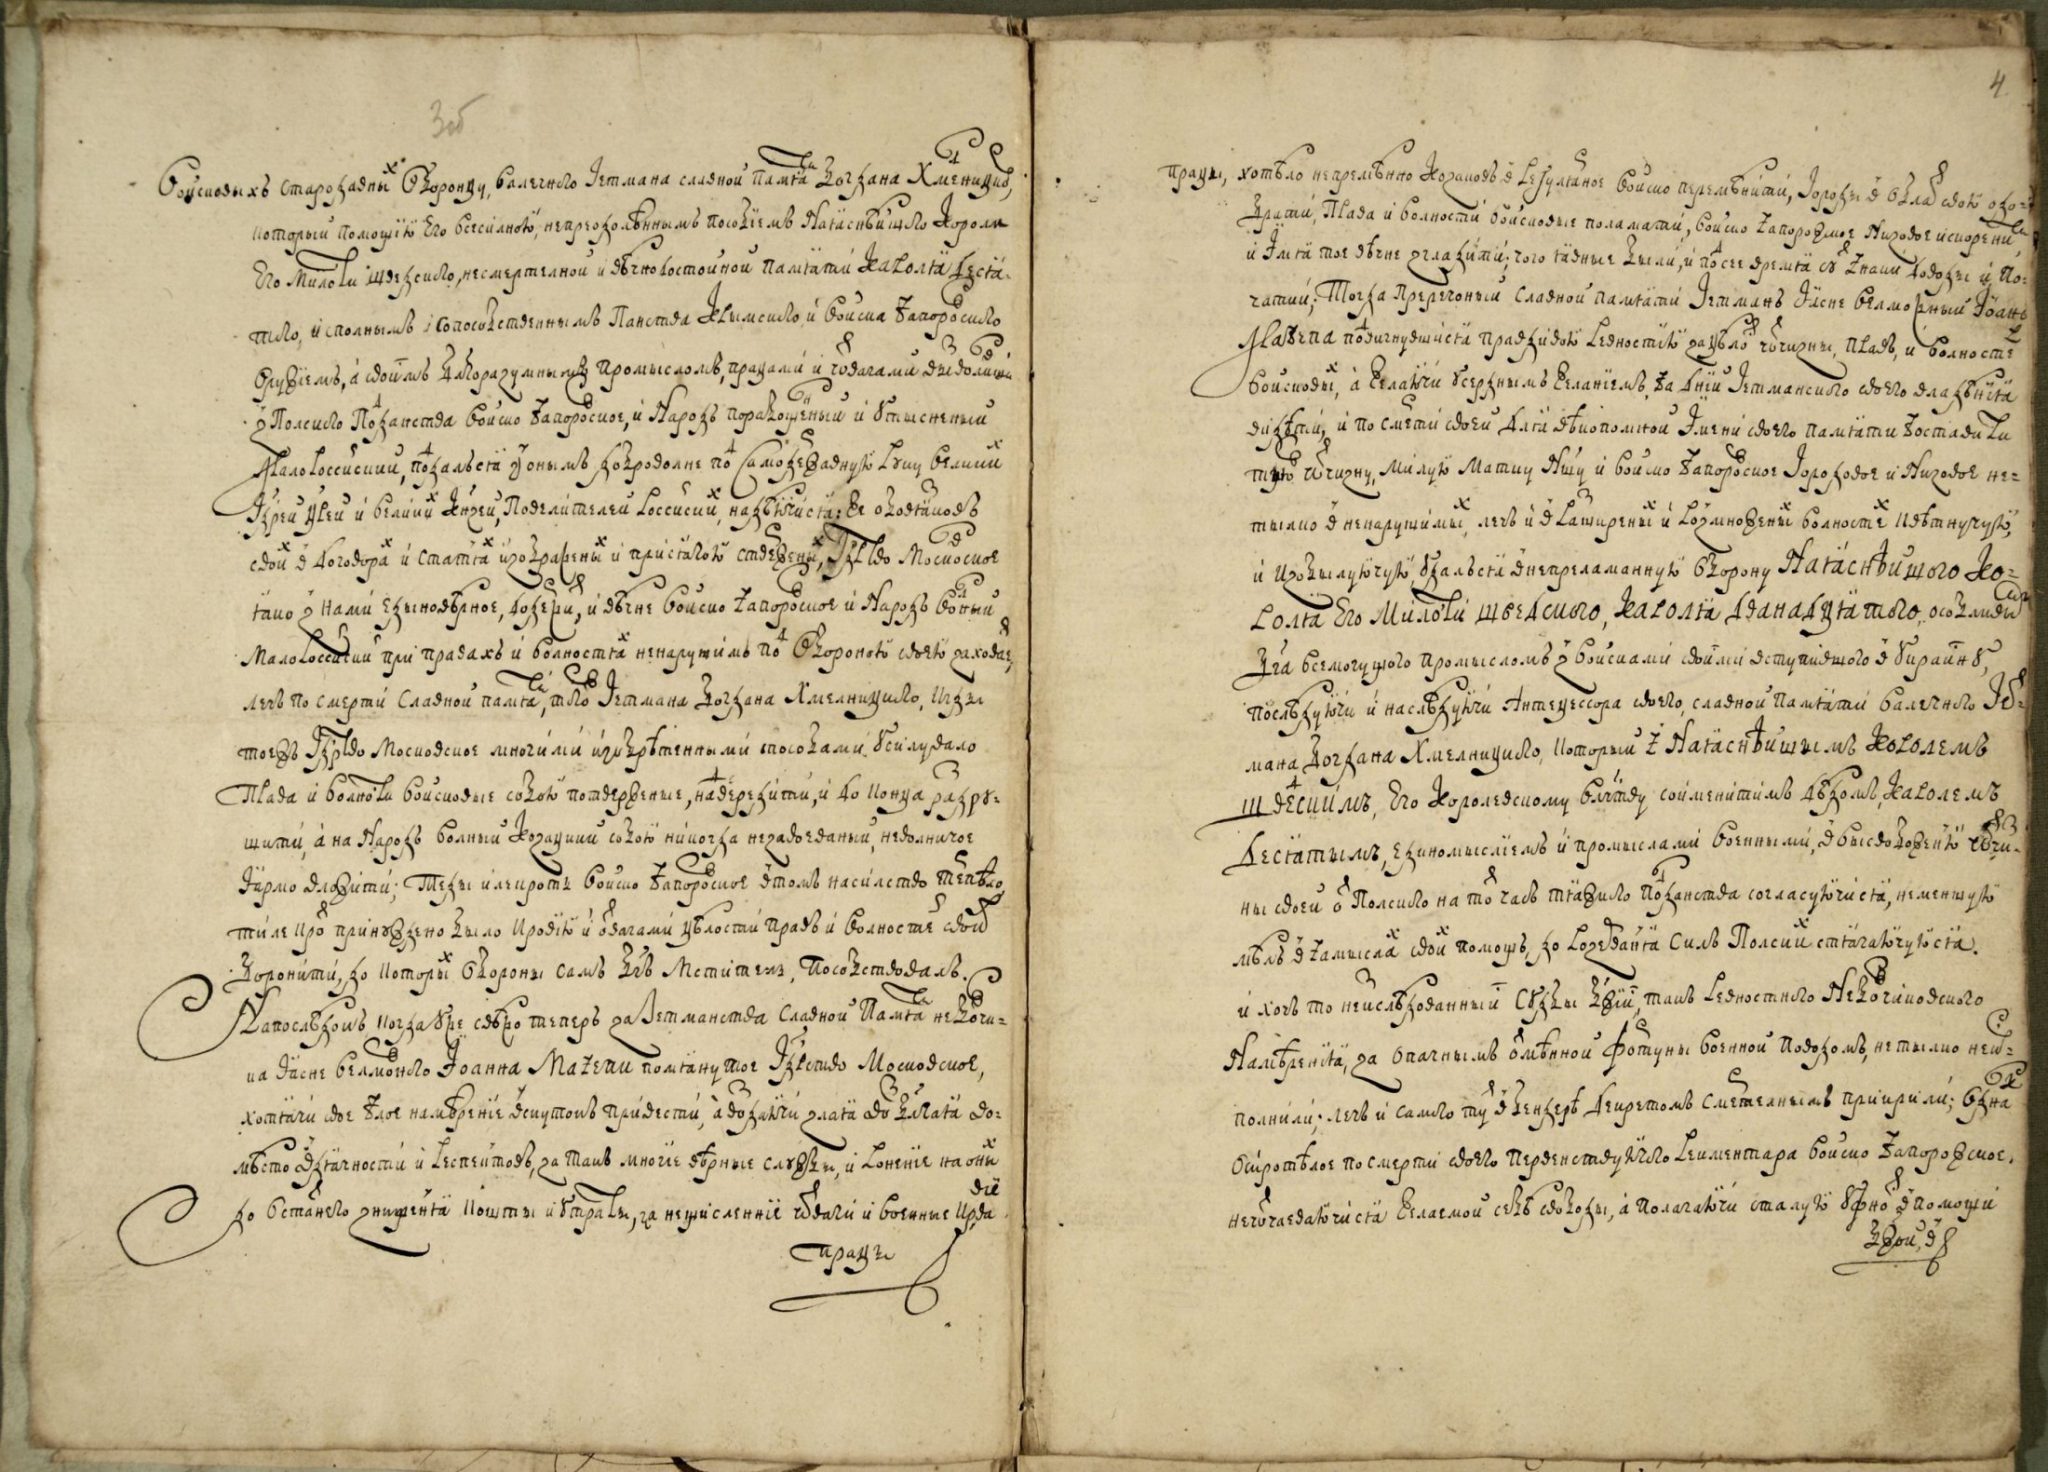 3об
Войсковыхъ стародавныхъ Оборонцу, валечного Гетмана славной памяти Богдана Хмелницкого,
который помощію Его всесилною, непреодолѣннымъ пособіемъ Наяснѣйшого Короля
Его Милости шведского, несмертелной и вѣчнодостойной памяти Каролія Деся-
того, и сполнымъ и сопособственнымъ Панства Крымского и Войска Запорожского
оружіемъ, а своимъ благоразумнымъ промысломъ, працами и отвагами выволивши
з Полского Подданства Войско Запорожское, и Народъ поработеный и утисненый
Малороссійскій, подался з онымъ добродолне под Самодержавную руку Великихъ
Царей и Великихъ Князей, Повелителей Россійскихъ, надѣючися: же обовязковъ
своихъ в договорахъ и статяхъ изображеныхъ и присягою ствержены, Царство Московское
яко з нами единовѣрное, додержи, и вѣчне Войско Запорожское и Народъ волный
Малороссійский при правахъ и волностяхъ ненарушимъ под Обороною своею заховае,
лечъ по смерти славной памяти, того Гетмана Богдана Хмелницкого, кгды
тоежъ Царство Московское многими изобрѣтенными способами усиловало
Права и волности войсковые собою потверженые, надвережити, и до конца разру-
шити, а на Народъ волный Козацкий собою никогда незавоеваный, неволничое
ярмо вложити; Теды илекротъ Войско Запорожское в томъ насилство терпѣло,
тиле кротъ принуждено было кровію и отвагами цѣлости правъ и волностей своихъ
боронити, до которыхъ обороны самъ Бгъ Мститель, пособствовалъ.
Напослѣдокъ, когда уже свѣжо теперъ за Гетманства славной Памяти небожчи-
ка Ясне велможного Іоанна Мазепи помянутое Царство Московское,
хотячи свое злое намѣреніе в скутокъ привести, и воздаючи злая во благая во-
мѣсто вдячности и респектовъ, за такъ многіе вѣрные службы, и ронение на оныхъ
до останего знищеня кошты и утраты, за незчисленніе отваги и военные кровавіе
працы
4
працы, хотѣло непремѣнно Козаковъ в регулярное войско перемѣнити, Городы в область свою ово-
брати, Права и волности войсковые поламати, Войско Запорожское Низовое искоренити,
и Имя тое вѣчне згладити; чого явные были, и по сее время суть знаки доводы и по-
чатки; Тогда преречоный славной памяти Гетманъ Ясне велможный Іоанъ
Мазепа подвигнувшися правдивою ревностію за цѣлость отчизны, Правъ, и волностей
войсковыхъ, а желаючи усерднымъ желаніемъ, за дній Гетманского своего владѣнія
видѣти, и по смерти своей для вѣкопомной Імени своего памяти зоставити
тую отчизну, милую матку Нашу и Войско Запорожское Городовое и Низовое не-
тылко в ненарушимыхъ, лечъ и в разширеныхъ и розмноженыхъ волностехъ квѣтнучую,
и изобылуючую, удался в непреламанную оборону Наяснѣйшого Ко-
роля Его Милости шведского, Кароля дванадцятого, особливимъ
Бга всемогущого промысломъ з войсками своими вступившого в Украину,
послѣдуючи и наслѣдуючи Антецессора своего, славной памяти валечного Гет-
мана Богдана Хмелницкого, который з Наяснѣйшымъ Королемъ
шведскимъ, Его Королевскому Величеству соименитимъ дѣдомъ, Каролемъ
Десятымъ, единомысліемъ и промыслами военными, в высвобоженю отчи-
ны своей отъ Полского на той часъ тяжкого подданства согласуючися, неменшую
мѣлъ в замыслахъ своихъ помощъ, до розерваня силъ Полскихъ стягаючуюся.
и хочъ то неислѣдованныи судбы Бжіи, такъ ревностного Небожчиковского
Намѣренія, за опачнымъ отмѣнной фортуны военной поводомъ, нетылко невы-
полнили; лечъ и самого ту в Бендерѣ декретомъ смертелнымъ прикрили; однакъ
осиротѣлое по смерти своего первенствуючого рейментара Войско Запорожское,
неотчаеваючися желаемой себѣ свободы, а полагаючи сталую уфность в помощи
Бжой, в